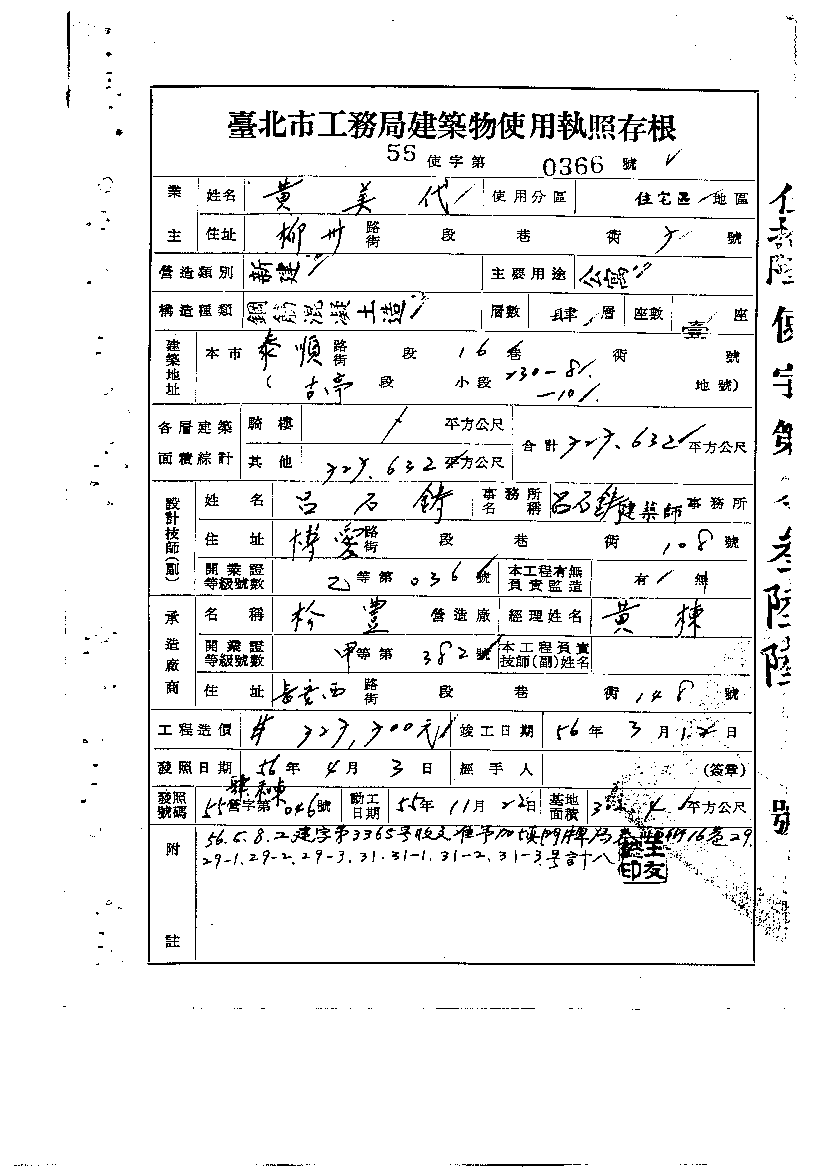 臺北市工務局建築物使用執照存根
55 使字第 0366 號
業主 姓名 黃美代 使用分區 住宅區 地區
住址 柳州 路街 段 巷 衖 號
營造類別 新建 主要用途 公寓
構造種類 鋼筋混凝土造 層數 肆 層 座數 壹 座
建築地址 本市 泰順 路街 段 16 巷 衖 號
( 古亭 段 小段 230-8 -10 地號)
各層建築面積綜計 騎樓 平方公尺 合計 727.632 平方公尺
其他 727.632 平方公尺
設計技師(副) 姓名 呂石鑄 事務所名稱 呂石鑄建築師 事務所
住址 博愛 路街 段 巷 衖 108 號
開業證等級號數 乙 等第 036 號 本工程有無負責監造 有 無
承造廠商 名稱 松豐 營造廠 經理姓名 黃棟
開業證等級號數 甲 等第 382 號 本工程負責技師(副)姓名
住址 長安西 路街 段 巷 衖 148 號
工程造價 元 竣工日期 56 年 3 月 日
發照日期 56 年 4 月 3 日 經手人 (簽章)
發照號碼 55 營字第 046 號 動工日期 55 年 11 月 22 日 基地面積 平方公尺
附註 56.5.8.2建字第3365号收文准予加填門牌 16巷29.
29-1.29-2.29-3.31.31-1.31-2.31-3号計八
使字第 叁陸陸 號